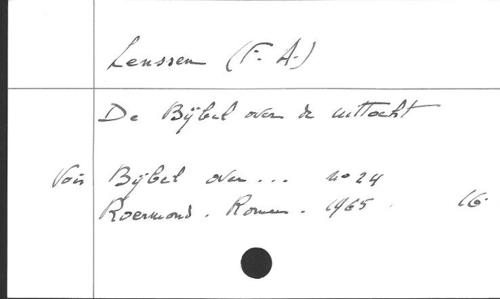 Lenssen (F. A.)
De Bijbel over de uittocht
Voir Bijbel over... no 24
Roermond. Romen. 1965. 16.